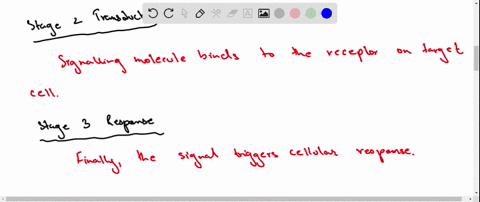 Stage 2 Transduct
Signalling molecule binds to the receptor on target
cell.
Stage 3 Response
Finally, the signal triggers cellular response.